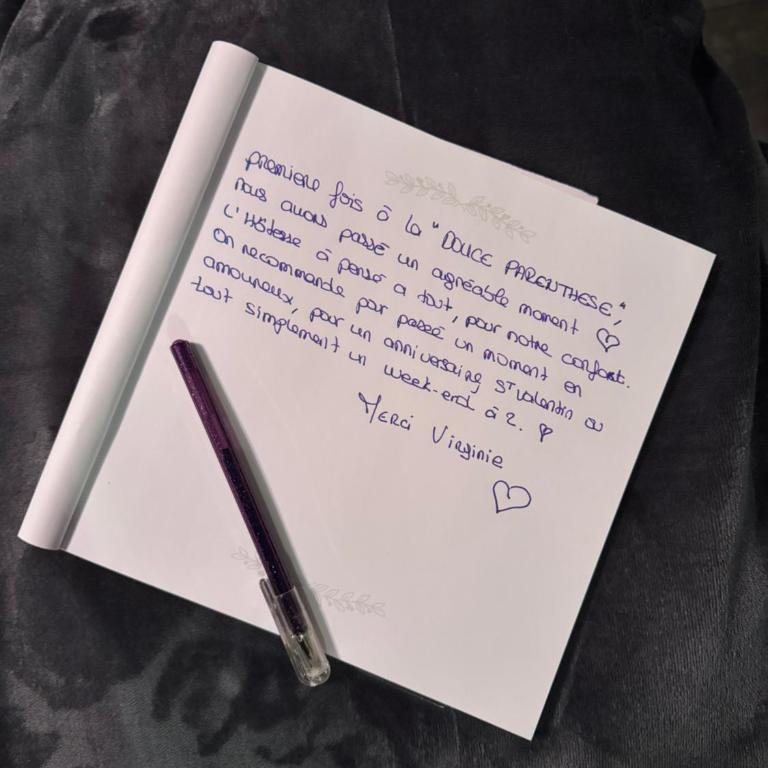 première fois à la "DOUCE PARENTHESE",
nous avons passé un agréable moment ♡
L'Hôtesse à pensé a tout, pour notre confort.
On recommande par passé un moment en
amoureux, pour un anniversaire, St Valentin ou
tout simplement un week-end à 2. ♡
Merci Virginie
♡